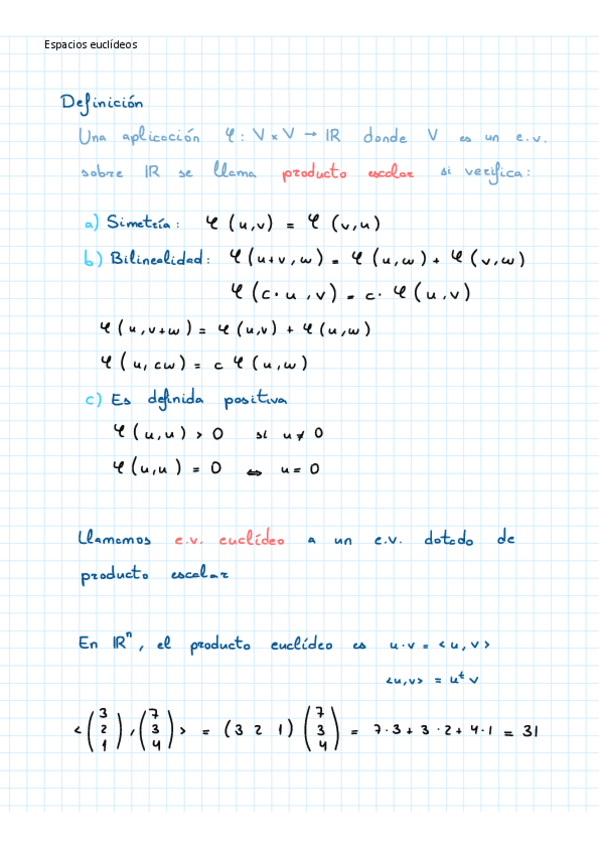 Espacios euclídeos
Definición
Una aplicación φ : V × V → ℝ donde V es un e.v.
sobre ℝ se llama producto escalar si verifica:
a) Simetría: φ (u,v) = φ (v,u)
b) Bilinealidad: φ (u+v, w) = φ (u,w) + φ (v,w)
φ (c·u, v) = c· φ (u,v)
φ (u, v+w) = φ (u,v) + φ (u,w)
φ (u, cw) = c φ (u,w)
c) Es definida positiva
φ (u,u) > 0 si u ≠ 0
φ (u,u) = 0 ⇔ u = 0
Llamamos e.v. euclídeo a un e.v. dotado de
producto escalar
En ℝⁿ, el producto euclídeo es u·v = <u, v>
<u,v> = uᵗ v
<(3 2 1), (7 3 4)> = (3 2 1) (7 3 4) = 7·3 + 3·2 + 4·1 = 31